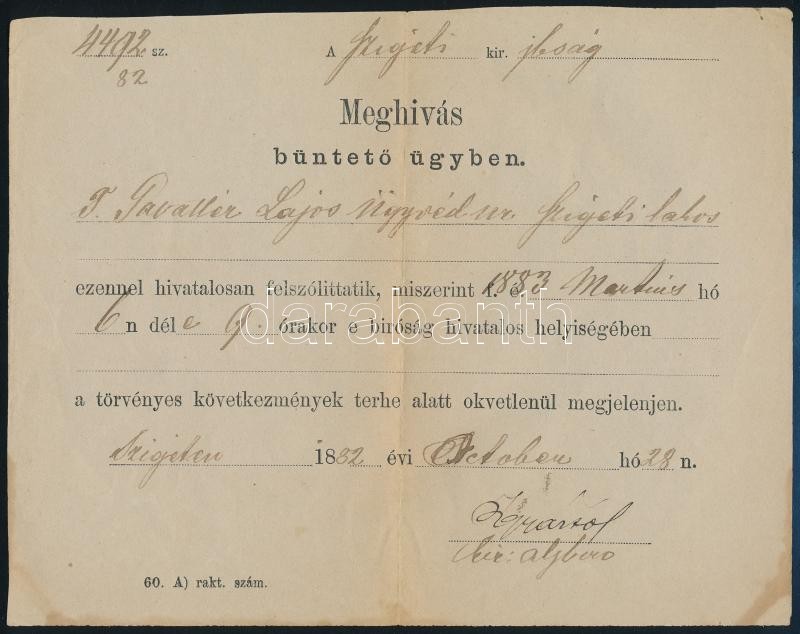 4492 sz. A Szigeti kir. jbság
82
Meghivás
büntető ügyben.
T. Gavallér Lajos ügyvéd ur. Szigeti lakos
ezennel hivatalosan felszólittatik, miszerint f. é. 1883 Martius hó
6 n dél e 9. órakor e biróság hivatalos helyiségében
darabanth
a törvényes következmények terhe alatt okvetlenül megjelenjen.
Szigeten 1882 évi October hó 28 n.
kir: aljbiro
60. A) rakt. szám.